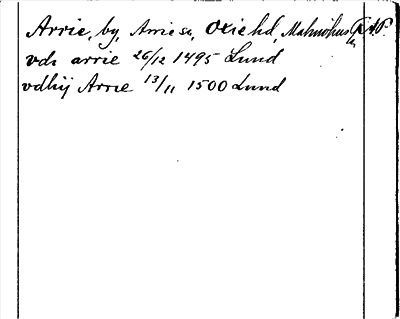 Arrie, by, Arrie sn, Oxie hd, Malmöhus
vdz arrie 26/12 1495 Lund
vdhij Arrie 13/11 1500 Lund